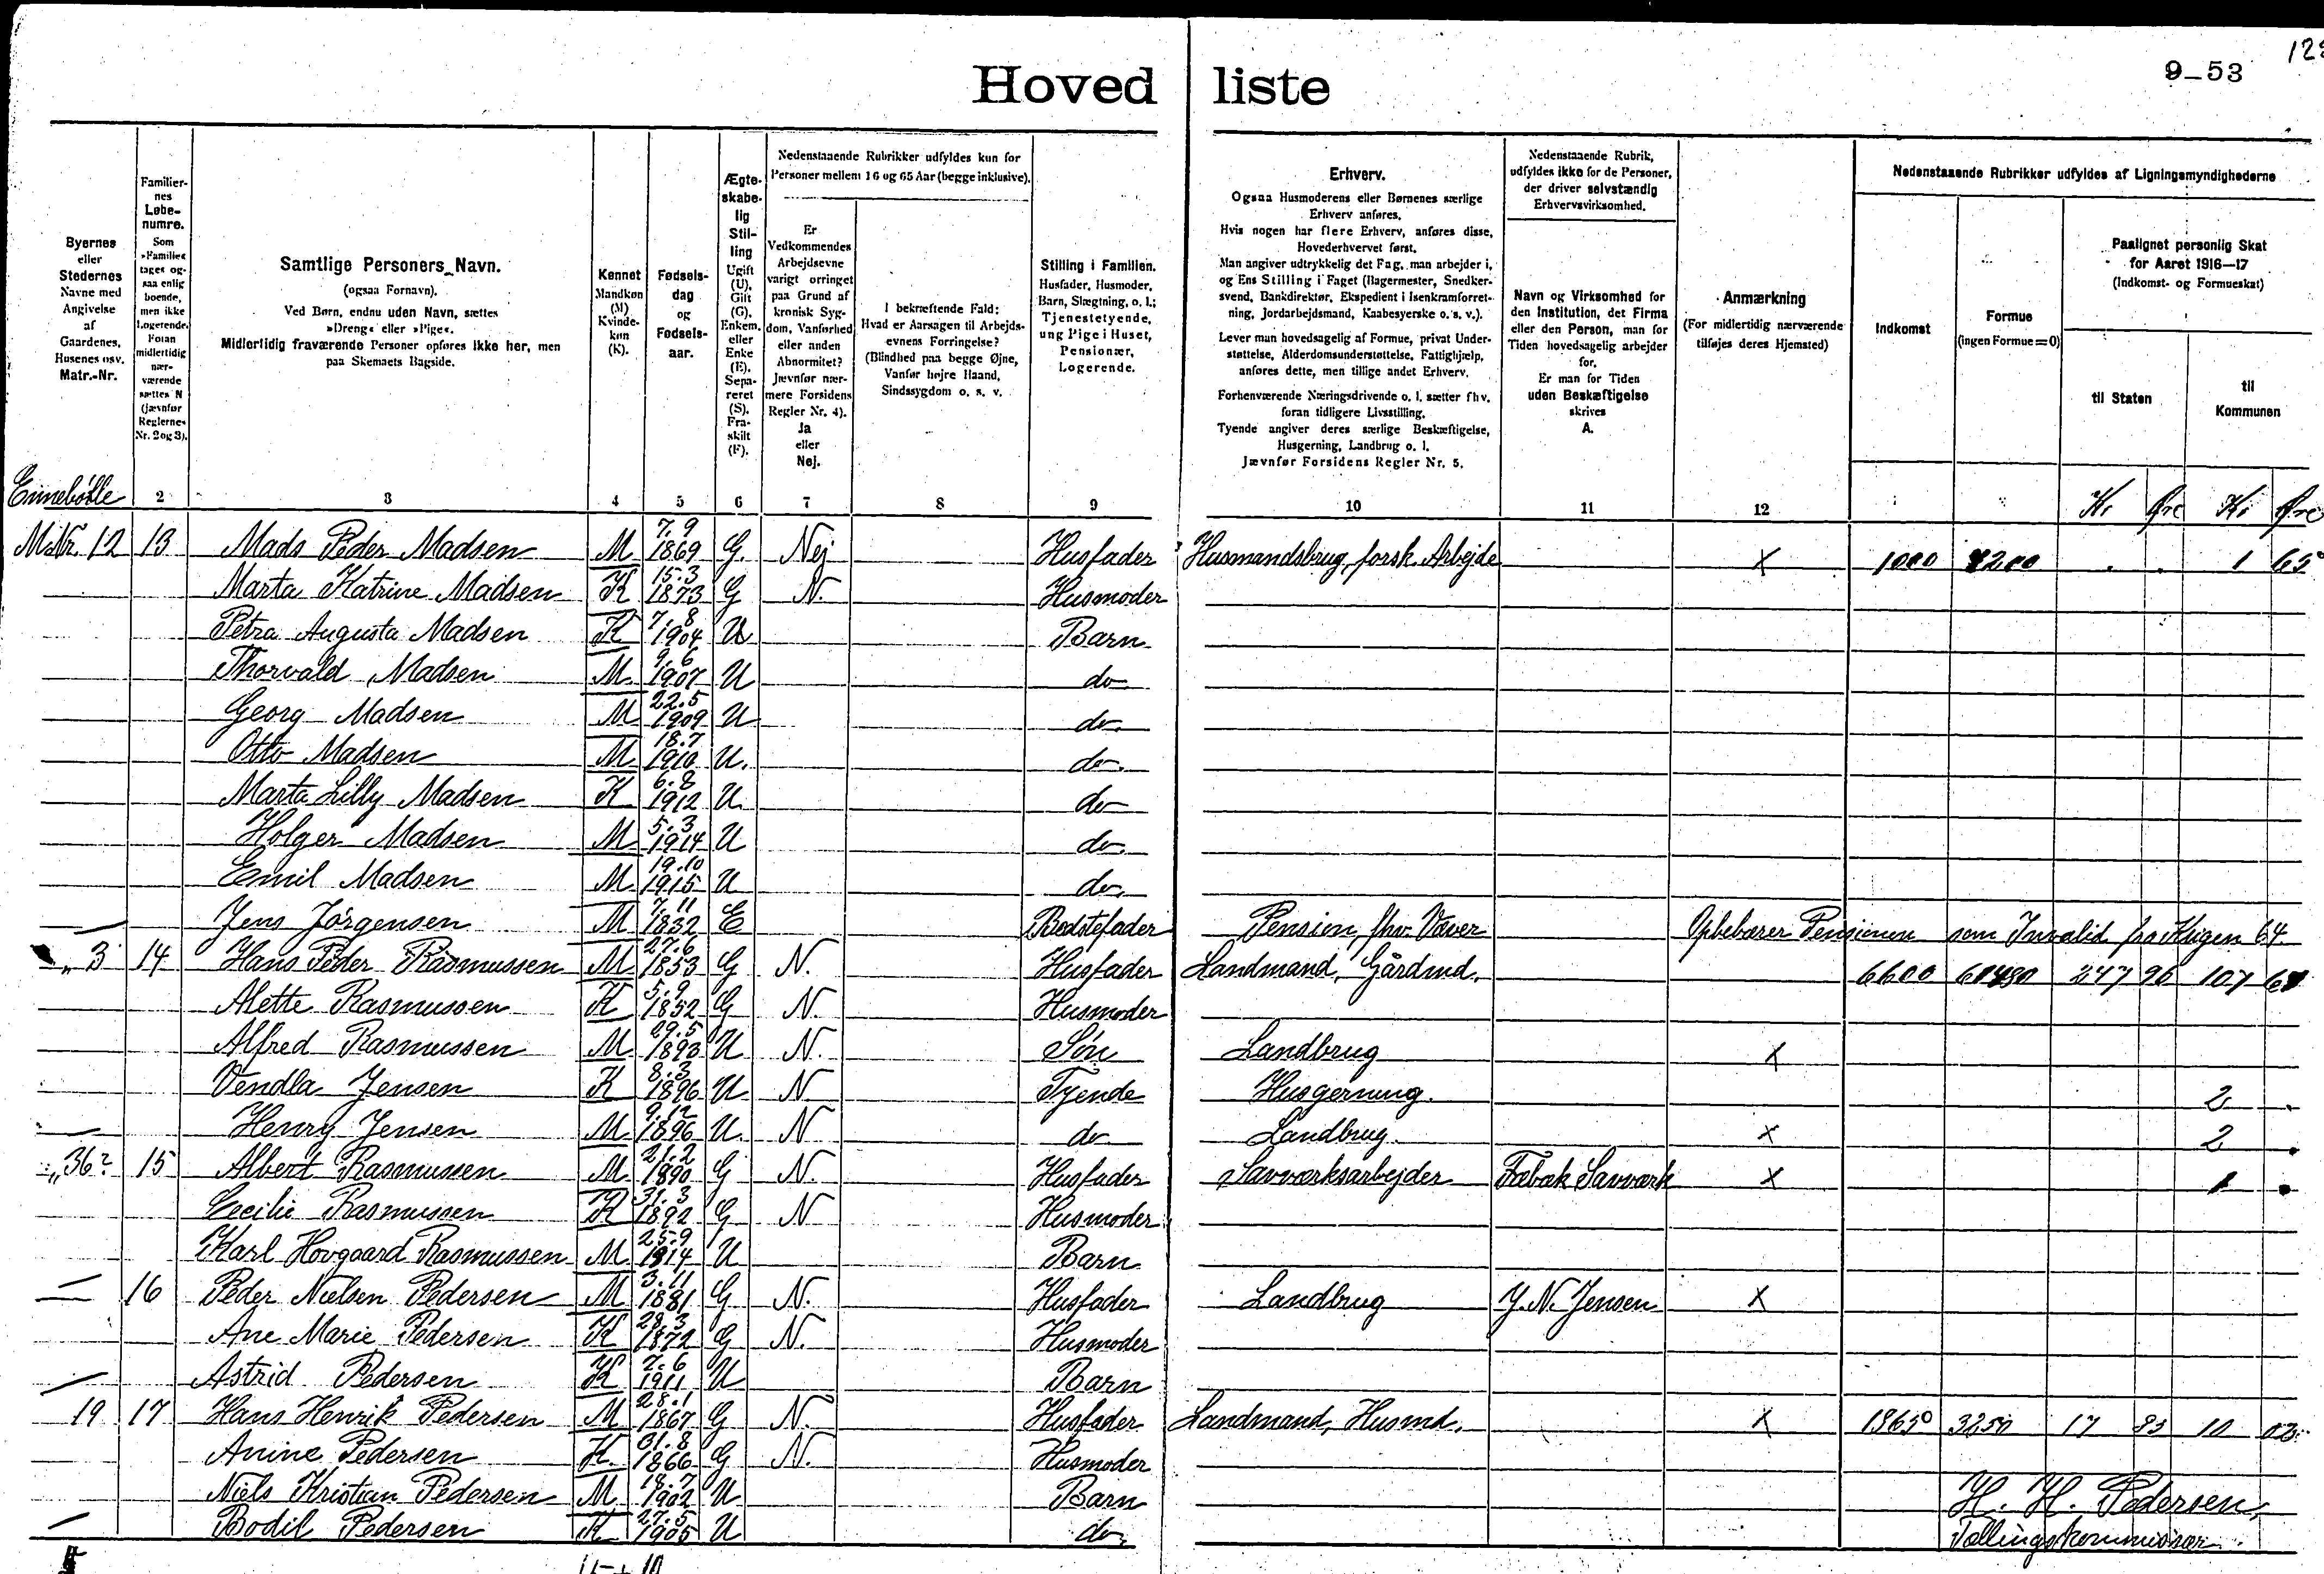 128
9-53
Hoved liste
Byernes
eller
Stedernes
Navne med
Angivelse
af
Gaardenes,
Husenes osv.
Matr.-Nr.
Familier-
nes
Løbe-
numre.
Som
»Familie«
tages og-
saa enlig
boende,
men ikke
Logerende.
Foran
midlertidig
nær-
værende
sættes N
(jævnfør
Reglernes
Nr. 2 og 3).
Samtlige Personers Navn.
(ogsaa Fornavn).
Ved Børn, endnu uden Navn, sættes
»Dreng« eller »Pige«.
Midlertidig fraværende Personer opføres ikke her, men
paa Skemaets Bagside.
Kønnet
Mandkøn
(M)
Kvinde-
køn
(K).
Fødsels-
dag
og
Fødsels-
aar.
Ægte-
skabe-
lig
Stil-
ling
Ugift
(U).
Gift
(G).
Enkem.
eller
Enke
(E).
Sepa-
reret
(S).
Fra-
skilt
(F).
Nedenstaaende Rubrikker udfyldes kun for
Personer mellem 16 og 65 Aar (begge inklusive).
Er
Vedkommendes
Arbejdsevne
varigt forringet
paa Grund af
kronisk Syg-
dom, Vanførhed
eller anden
Abnormitet?
Jævnfør nær-
mere Forsidens
Regler Nr. 4).
Ja
eller
Nej.
I bekræftende Fald:
Hvad er Aarsagen til Arbejds-
evnens Forringelse?
(Blindhed paa begge Øjne,
Vanfør højre Haand,
Sindssygdom o. s. v.
Stilling i Familien.
Husfader, Husmoder,
Barn, Slægtning, o. l.;
Tjenestetyende,
ung Pige i Huset,
Pensionær,
Logerende.
Erhverv.
Ogsaa Husmoderens eller Børnenes særlige
Erhverv anføres.
Hvis nogen har flere Erhverv, anføres disse,
Hovederhvervet først.
Man angiver udtrykkelig det Fag, man arbejder i,
og Ens Stilling i Faget (Bagermester, Snedker-
svend, Bankdirektør, Ekspedient i Isenkramforret-
ning, Jordarbejdsmand, Kaabesyerske o. s. v.).
Lever man hovedsagelig af Formue, privat Under-
støttelse, Alderdomsunderstøttelse, Fattighjælp,
anføres dette, men tillige andet Erhverv.
Forhenværende Næringsdrivende o. l. sætter fhv.
foran tidligere Livsstilling.
Tyende angiver deres særlige Beskæftigelse,
Husgerning, Landbrug o. l.
Jævnfør Forsidens Regler Nr. 5.
Nedenstaaende Rubrik,
udfyldes ikke for de Personer,
der driver selvstændig
Erhvervsvirksomhed.
Navn og Virksomhed for
den Institution, det Firma
eller den Person, man for
Tiden hovedsagelig arbejder
for.
Er man for Tiden
uden Beskæftigelse
skrives
A.
Anmærkning
(For midlertidig nærværende
tilføjes deres Hjemsted)
Nedenstaaende Rubrikker udfyldes af Ligningsmyndighederne
Indkomst
Formue
(ingen Formue = 0)
Paalignet personlig Skat
for Aaret 1916—17
(Indkomst- og Formueskat)
til Staten
til
Kommunen
Ennebölle 2 3 4 5 6 7 8 9 10 11 12 Kr Øre Kr Øre
M.Nr. 12 13 Mads Peder Madsen M 7.9 1869 G. Nej Husfader Husmandsbrug, forsk. Arbejde X 1000 1 65
Marta Katrine Madsen K 15.3 1873 G N. Husmoder
Petra Augusta Madsen K 7.8 1904 U Barn
Thorvald Madsen M 9.6 1907 U do
Georg Madsen M 22.5 1909 U do
Otto Madsen M 18.7 1910 U. do
Marta Lilly Madsen K 6.8 1912 U do
Holger Madsen M 5.3 1914 U do
Emil Madsen M 19.10 1915 U do
Jens Jörgensen M 7.11 1832 E Bedstefader Pension, fhv. Væver Opbebærer Pensionen som Invalid fra Krigen 64
" 3 14 Hans Peder Rasmussen M 27.6 1853 G N. Husfader Landmand, Gårdmd. 6600 247 96 107
Mette Rasmussen K 5.9 1852 G N. Husmoder
Alfred Rasmussen M 29.5 1893 U N. Sön Landbrug X
Vendla Jensen K 8.3 1896 U N Tyende Husgerning. 2 .
Henry Jensen M 9.12 1896 U. N do Landbrug. X 2 .
" 36² 15 Albert Rasmussen M 21.2 1890 G N. Husfader Savværksarbejder Fæbæk Savværk X 1 .
Cecilie Rasmussen K 31.3 1892 G N Husmoder
Karl Hovgaard Rasmussen M 25.9 1914 U Barn
16 Peder Nielsen Pedersen M 3.11 1881 G N. Husfader Landbrug J. N. Jensen X
Ane Marie Pedersen K 28.3 1872 G N. Husmoder
Astrid Pedersen K 7.6 1911 U Barn
19 17 Hans Henrik Pedersen M 28.1 1867 G N. Husfader Landmand, Husmd. X 3250 17 85 10 03
Anine Pedersen K. 31.8 1866 G N. Husmoder
Niels Kristian Pedersen M 18.7 1902 U Barn H. H. Pedersen,
Bodil Pedersen K 27.5 1905 U do Tællingskommissær.